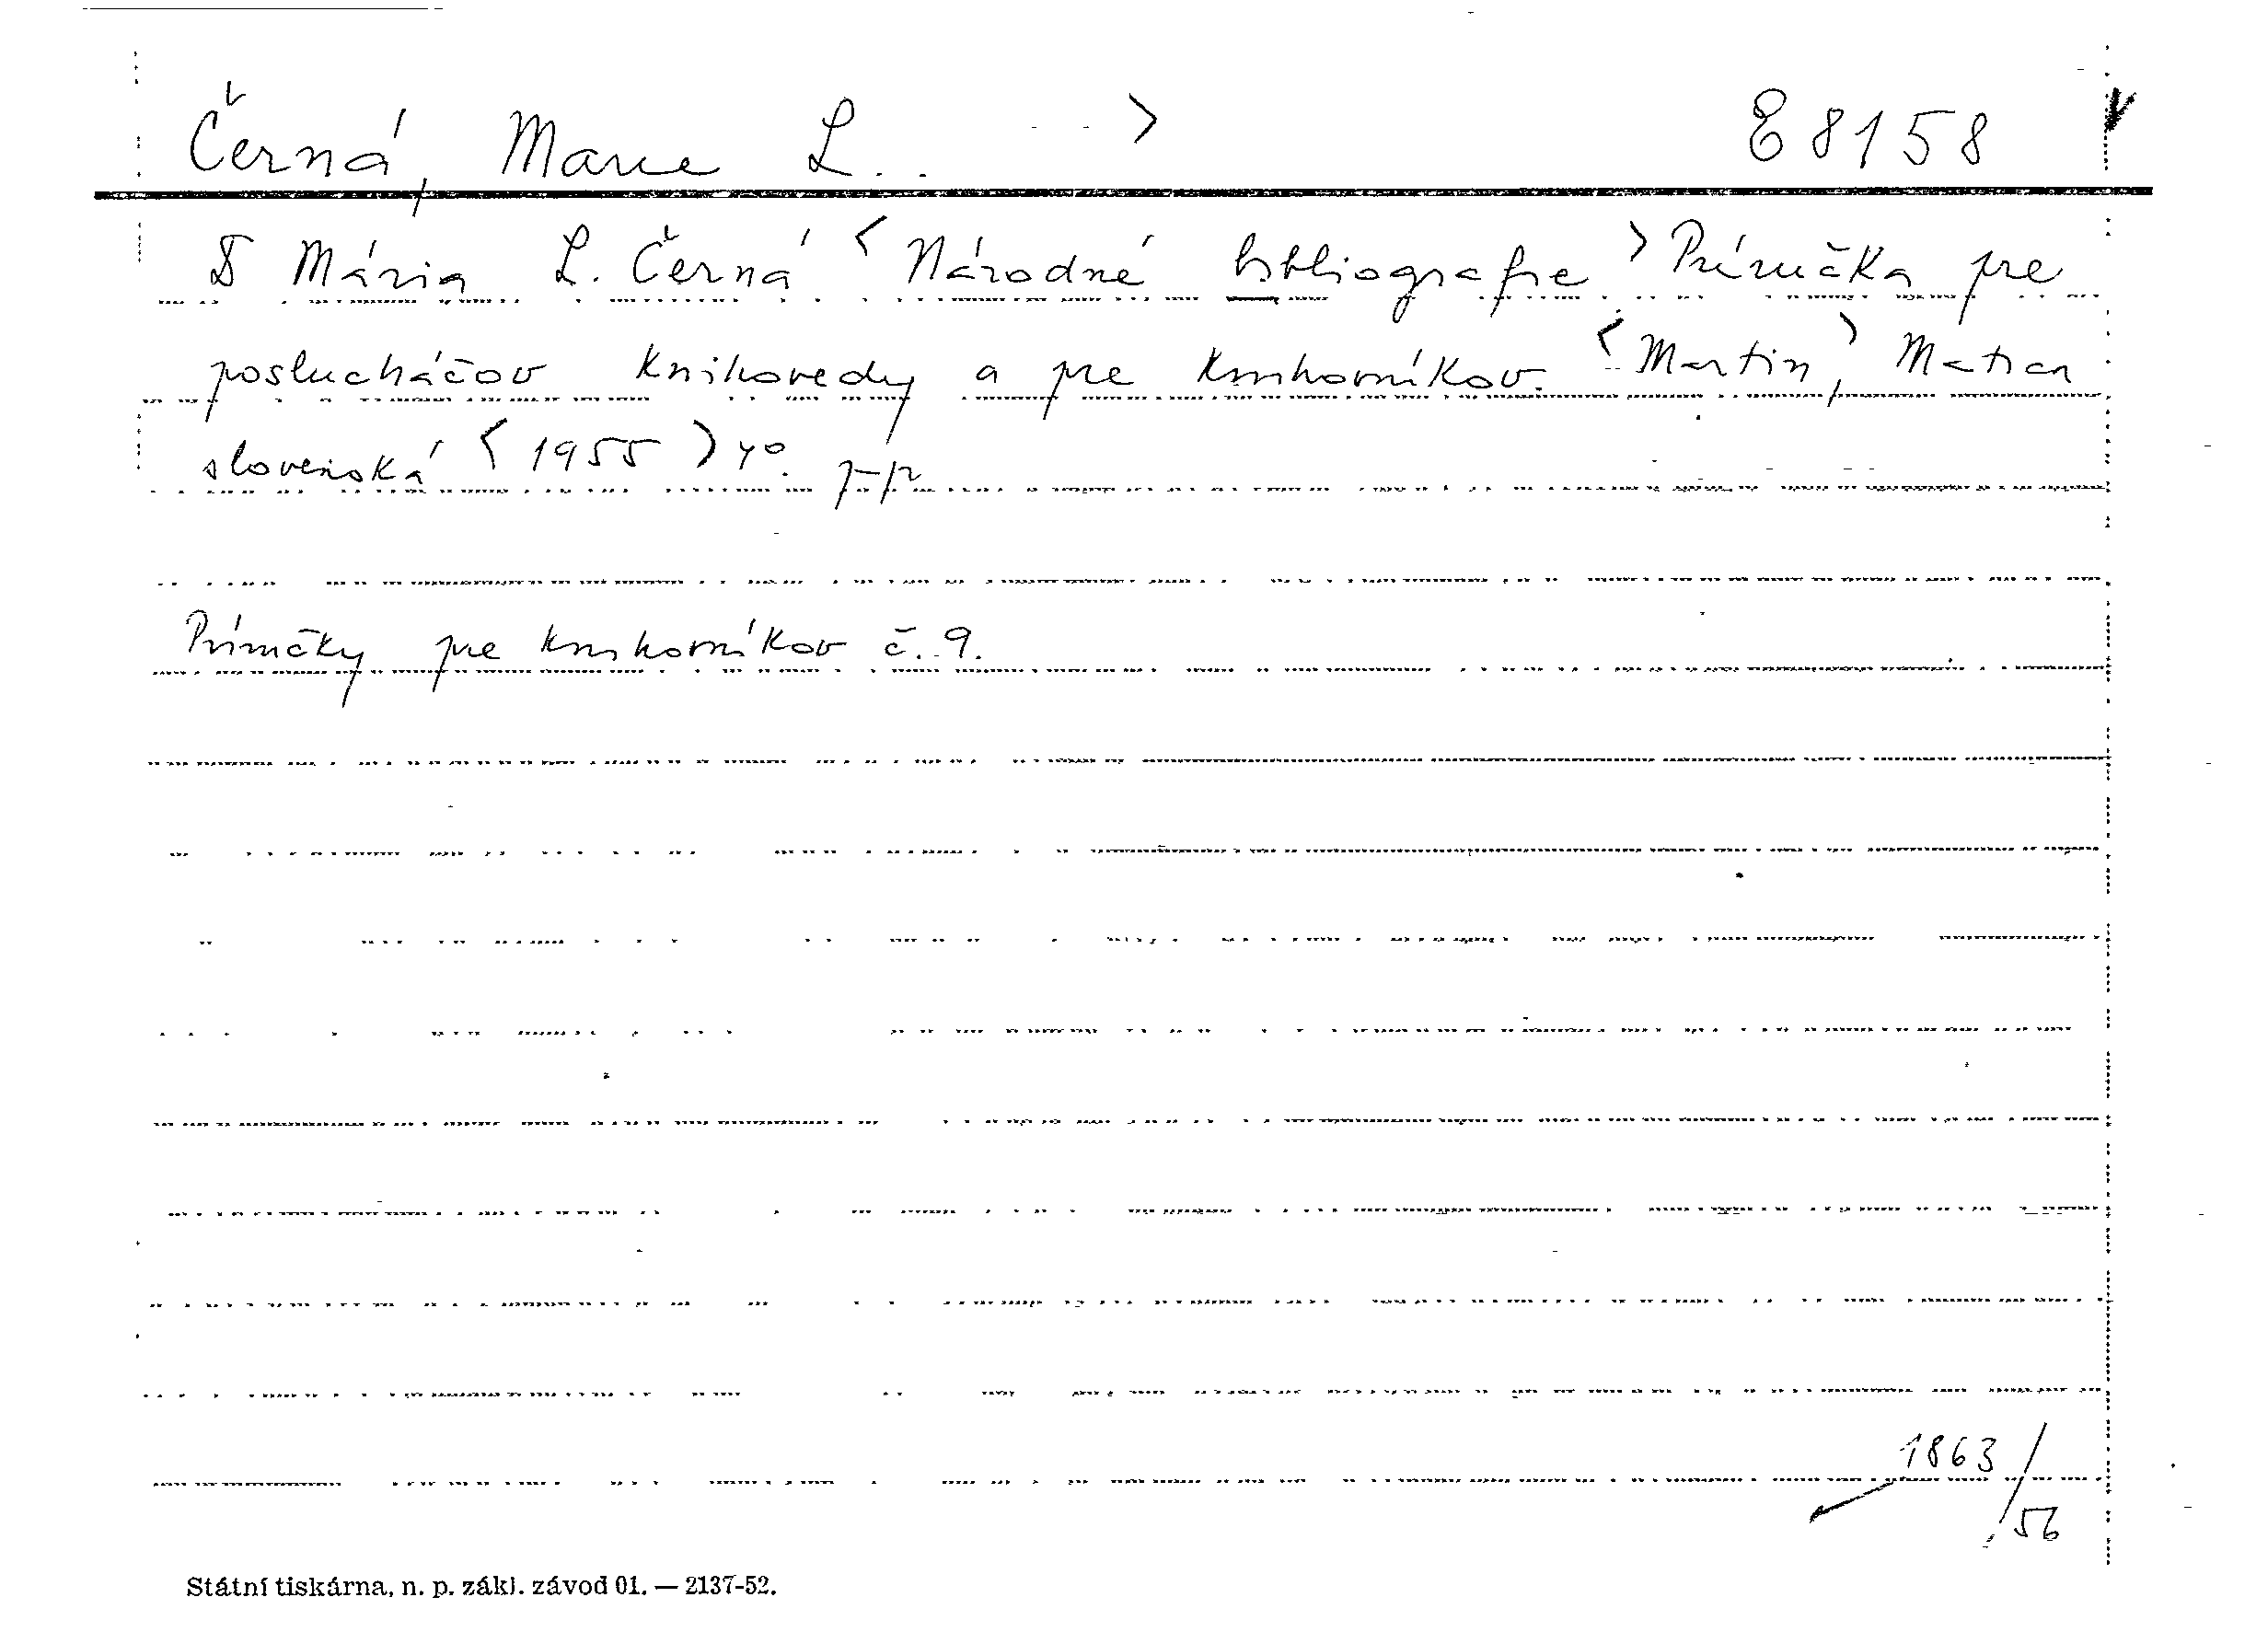 Černá, Marie L. . >  E 8158
Mária L. Černá < Národné bibliografie. > Príručka pre
poslucháčov knihovedy a pre knihovníkov. < Martin, > Matica
slovenská < 1955 > 4°.
Príručky pre knihovníkov č. 9.
1863/56
Státní tiskárna, n. p. zákl. závod 01. — 2137-52.